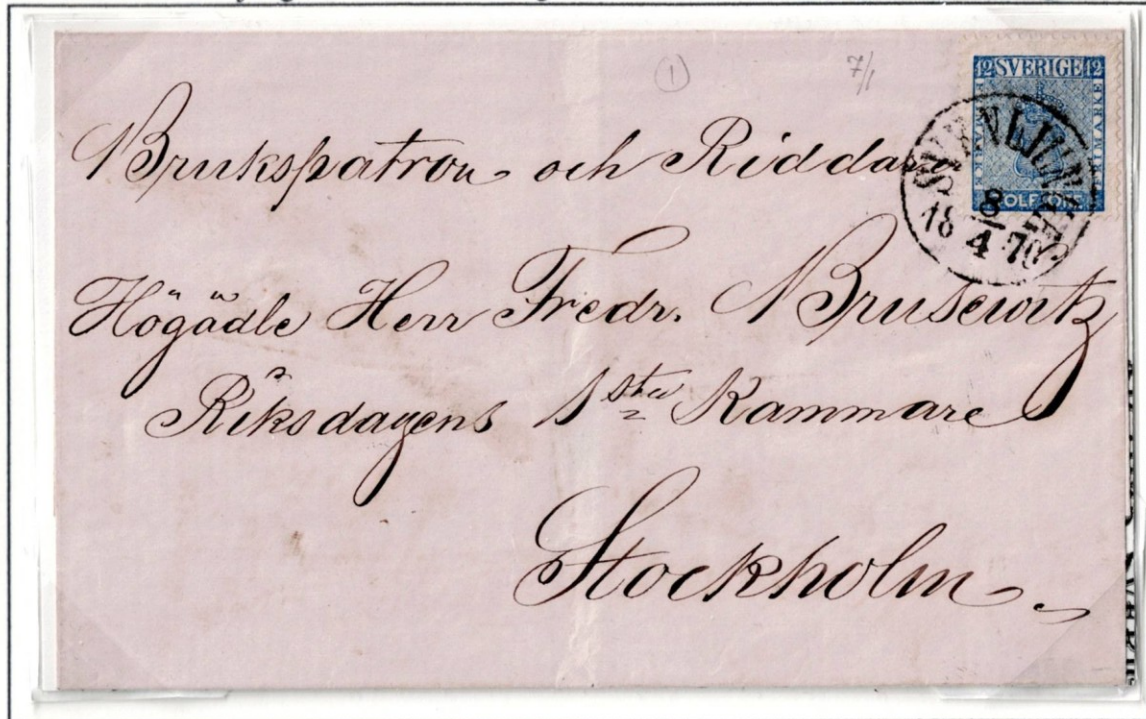 ①
7/1
12 SVERIGE 12
FRIMÄRKE
TOLF ÖRE
SVENLJUNGA
8
18 4 70
Brukspatron och Riddar
Högädle Herr Fredr. Brusewitz
Riksdagens 1sta Kammare
Stockholm